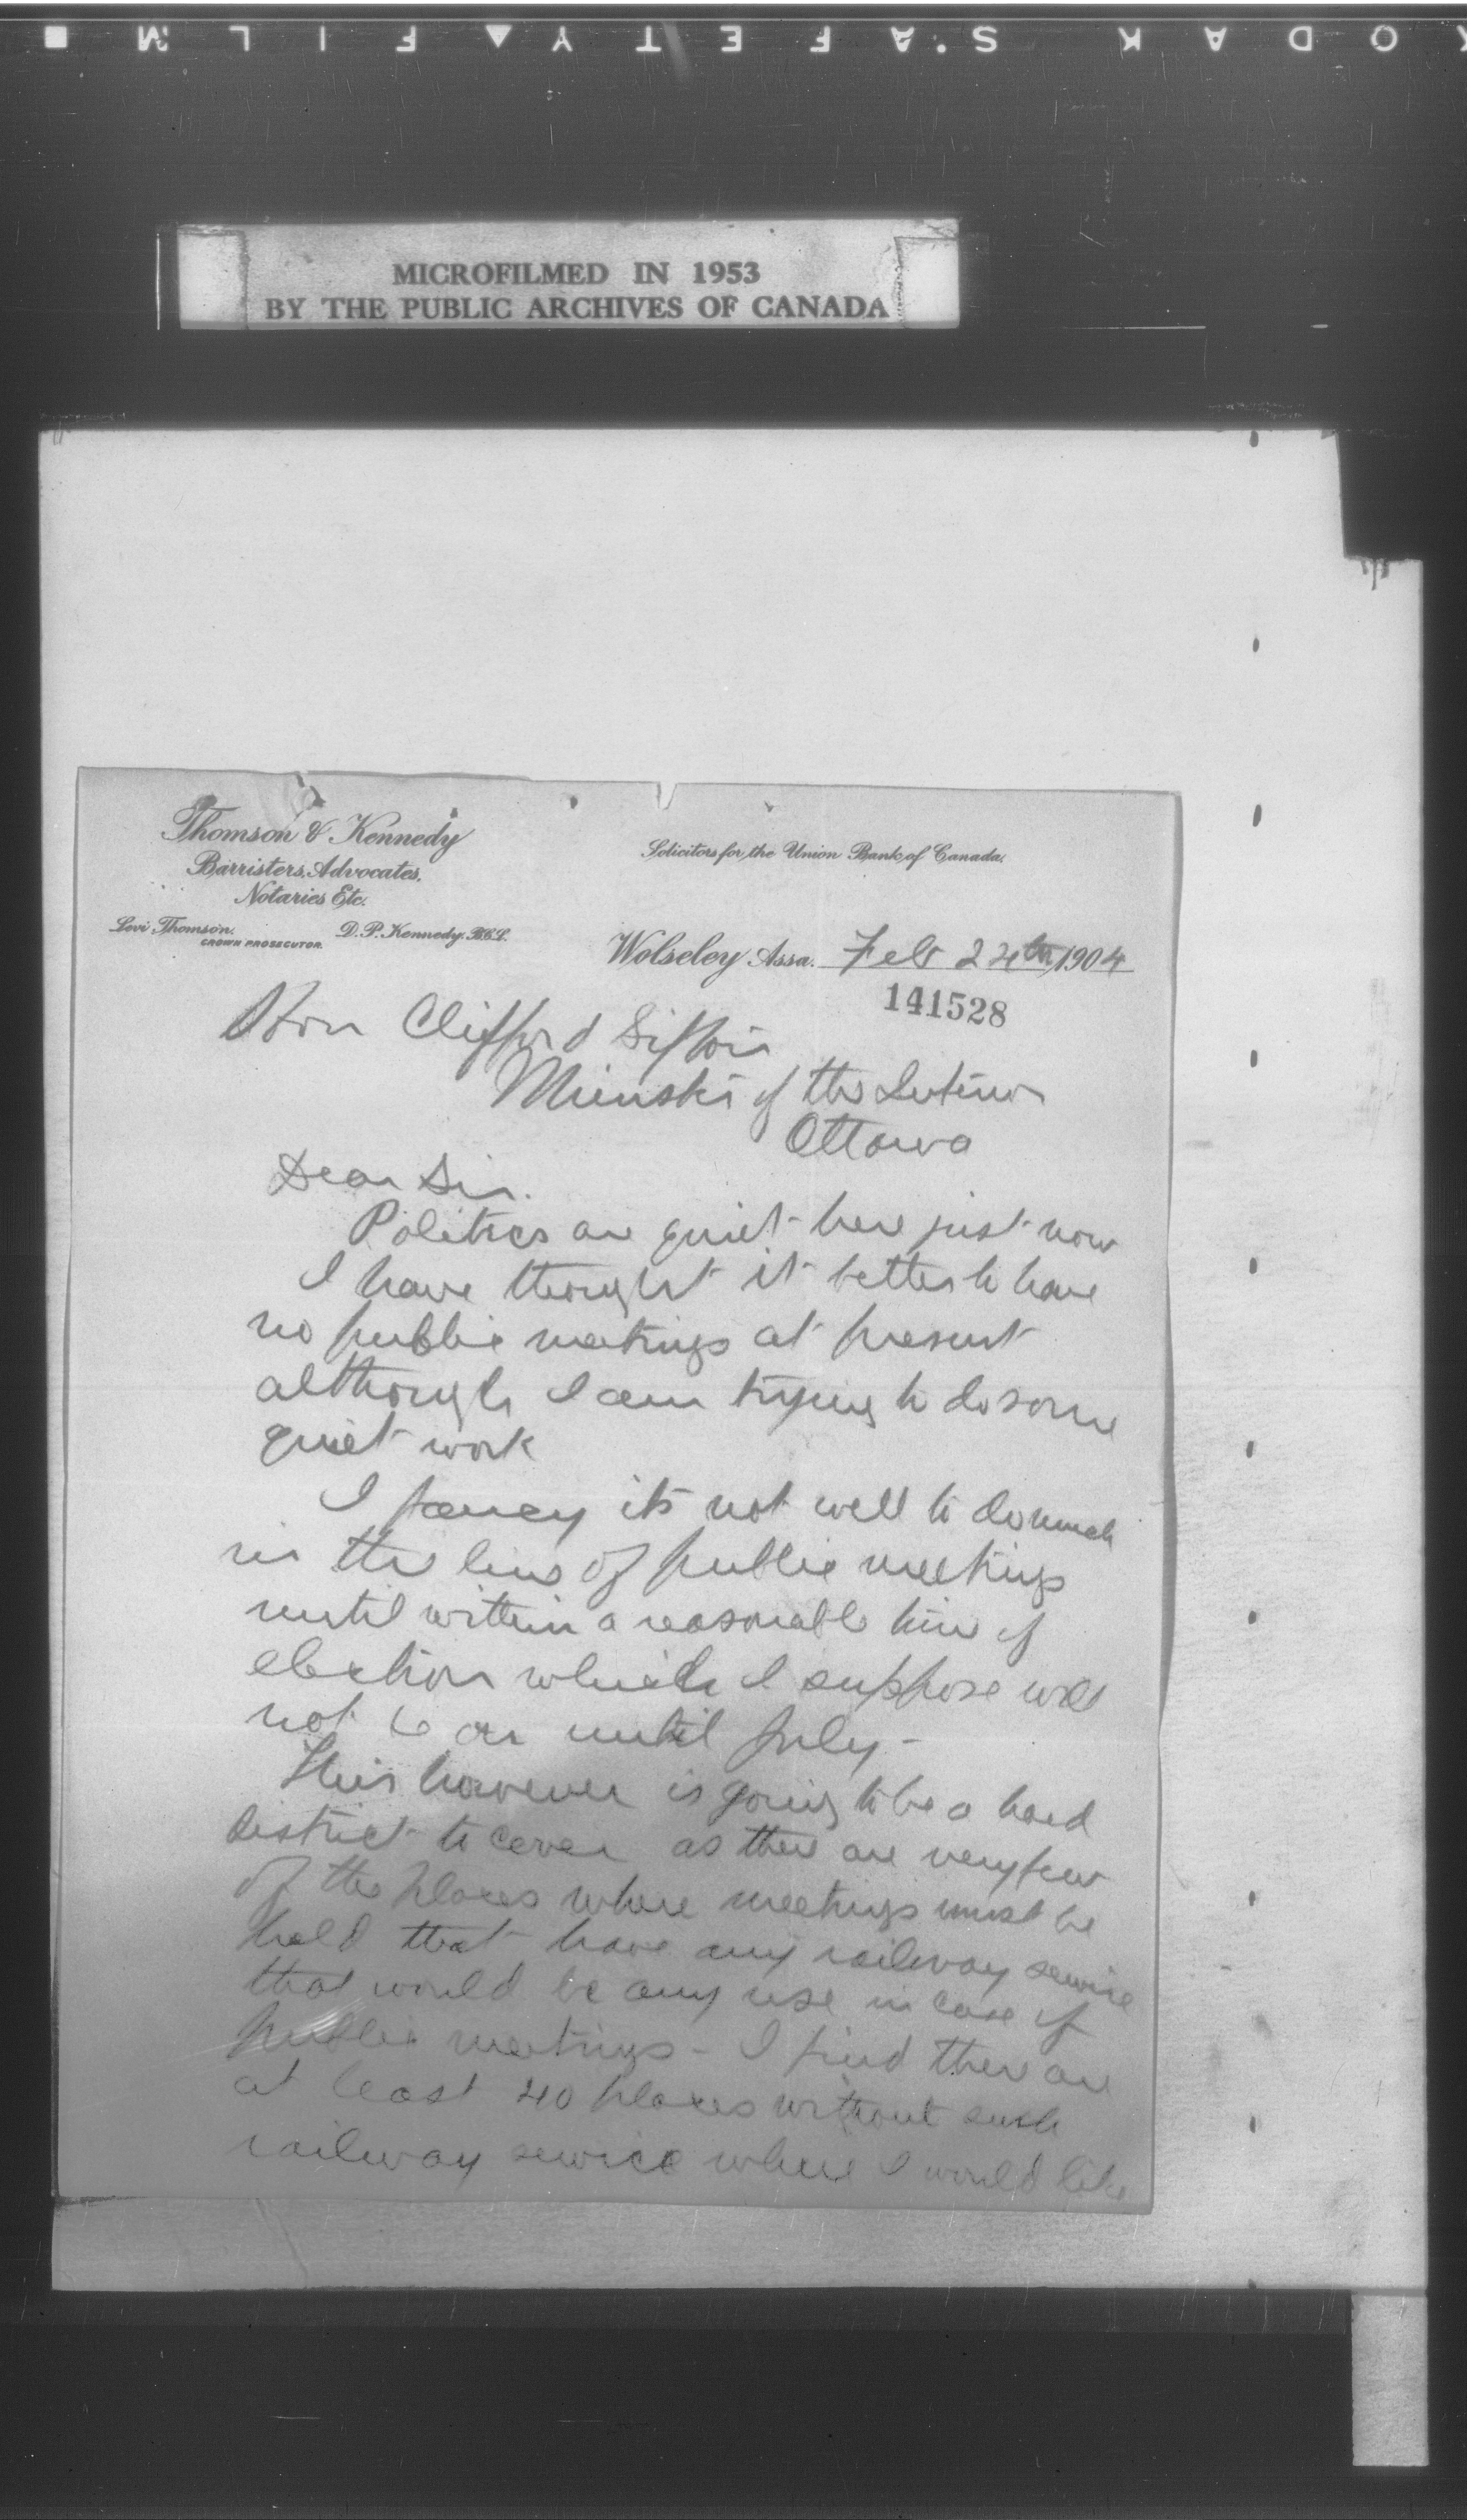 KODAK SAFETY FILM
MICROFILMED IN 1953
BY THE PUBLIC ARCHIVES OF CANADA
Thomson & Kennedy
Barristers, Advocates,
Notaries Etc.
Solicitors for the Union Bank of Canada.
Levi Thomson. D. P. Kennedy. B.C.L.
CROWN PROSECUTOR.
Wolseley Assa. Feb 24th 1904
141528
Hon Clifford Sifton
Minister of the Interior
Ottawa
Dear Sir.
Politics are quiet here just now
I have thought it better to have
no public meetings at present
although I am trying to do some
quiet work
I fancy its not well to do much
in the line of public meetings
until within a reasonable time of
election which I suppose will
not be on until July -
This however is going to be a hard
district to cover as there are very few
of the places where meetings must be
held that have any railway service
that would be any use in case of
public meetings - I find there are
at least 40 places without such
railway service where I would like